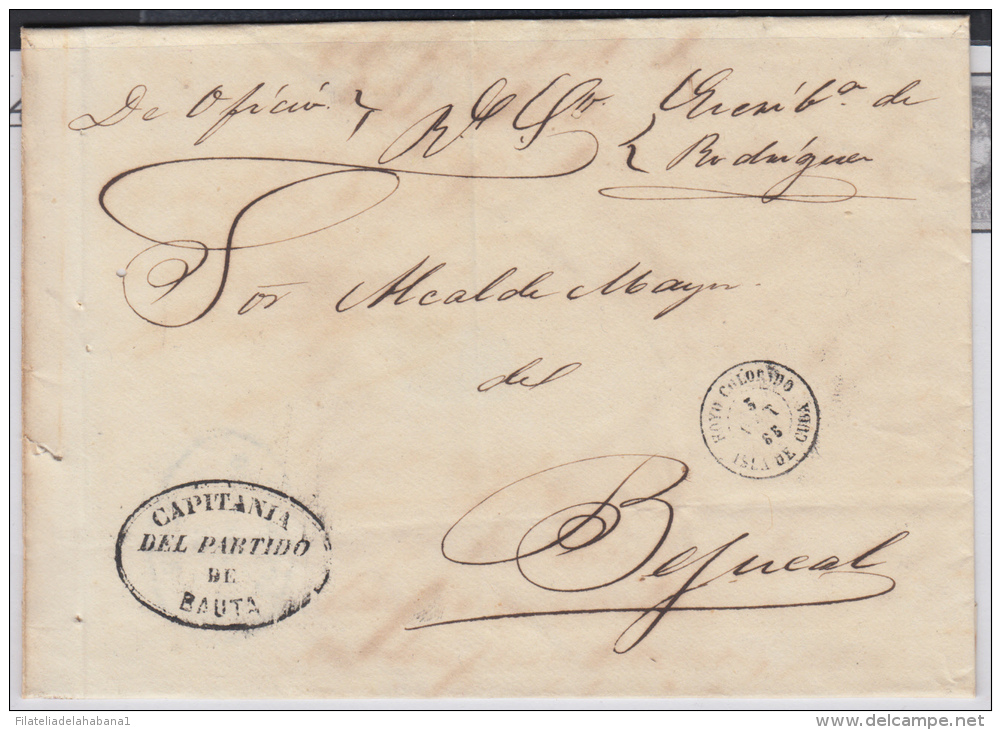 De Oficio
Escrib.ª de
Rodriguez
Sor Alcalde Mayor
del
Bejucal
HOYO COLORADO
ISLA DE CUBA
5
65
CAPITANIA
DEL PARTIDO
DE
BAUTA
Filateliadelahabana1
www.delcampe.net